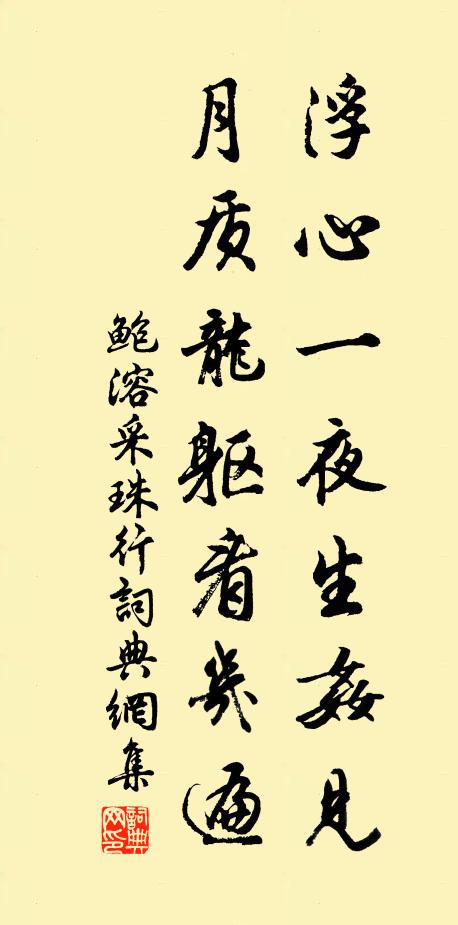 浮心一夜生姦見
月质龍躯看幾遍
鮑溶采珠行詞典網集
詞典网印